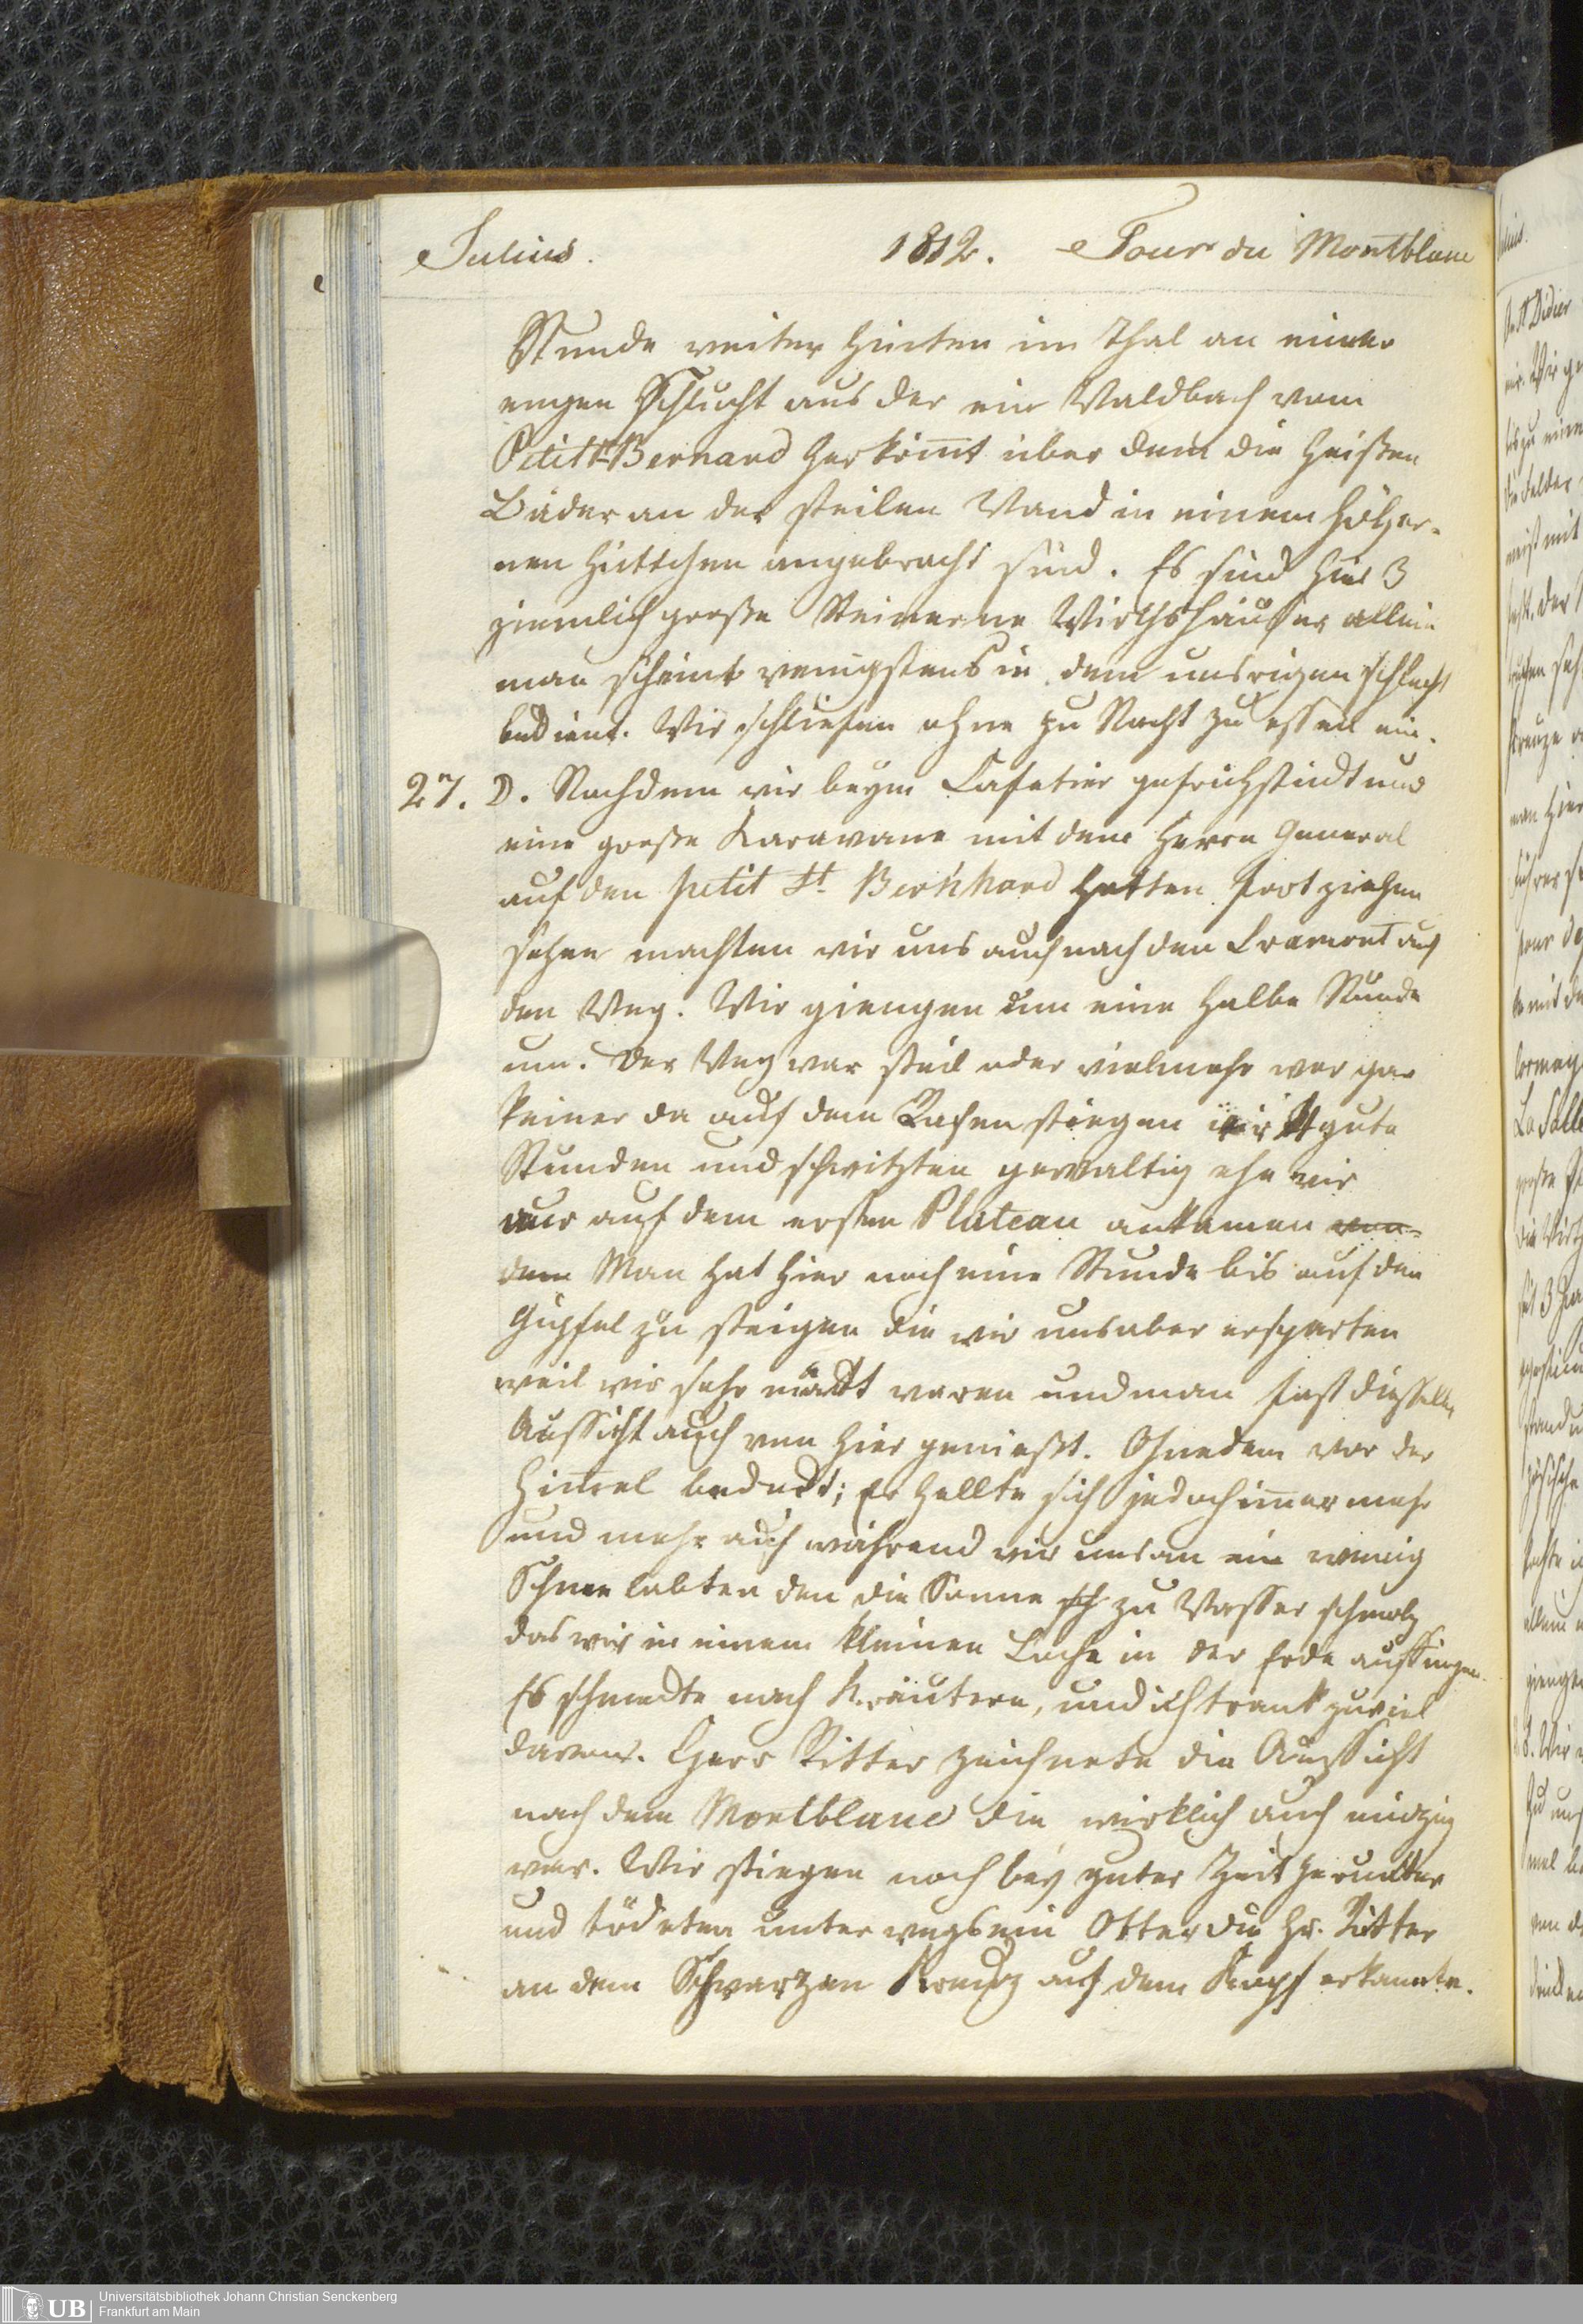 Julius. 1812. Tour du Montblanc
Stunde weiter hinten im Thal an einer
engen Schlucht aus der ein Waldbach vom
Petit St Bernard herkom̄t über dem die heißen
Bäder an der steilen Wand in einem hölzer-
nen Hüttchen angebracht sind. Es sind hier 3
ziemlich große Steinerne Wirthshäuser allein
man scheint wenigstens in dem unsrigen schlecht
bedient. Wir schliefen ohne zu Nacht zu essen ein.
27. D. Nachdem wir beym Cafetier gefrühstückt und
eine große Karavane mit dem Herrn General
auf den petit St. Bernhard hatten fort ziehen
sehen machten wir uns auch nach dem Cramont auf
den Weg. Wir giengen um eine halbe Stunde
um. Der Weg war steil oder vielmehr war gar
keiner da auf dem Rasen stiegen wir 4 gute
Stunden und schwitzten gewaltig ehe wir
nur auf dem ersten Plateau ankamen von
dem Man hat hier noch eine Stunde bis auf den
Gipfel zu steigen die wir uns aber ersparten
weil wir sehr matt waren und man fast dieselbe
Aussicht auch von hier genießt. Ohnedem war der
Him̄el bedeckt; Er hellte sich jedoch im̄er mehr
und mehr auf während wir uns an ein wenig
Schnee labten den die Sonne sch zu Wasser schmolz
das wir in einem kleinen Loche in der Erde auffingen.
Es schmeckte nach Kräutern, und ich trank zuviel
davon. Herr Ritter zeichnete die Aussicht
nach dem Montblanc die wirklich auch einzig
war. Wir stiegen noch bey guter Zeit herunter
und tödeten unterwegs ein Otter die Hr. Ritter
an dem Schwarzen Kreuz auf dem Kopf erkannte.
Pr. St Didier
La Salle
Universitätsbibliothek Johann Christian Senckenberg
Frankfurt am Main
UB